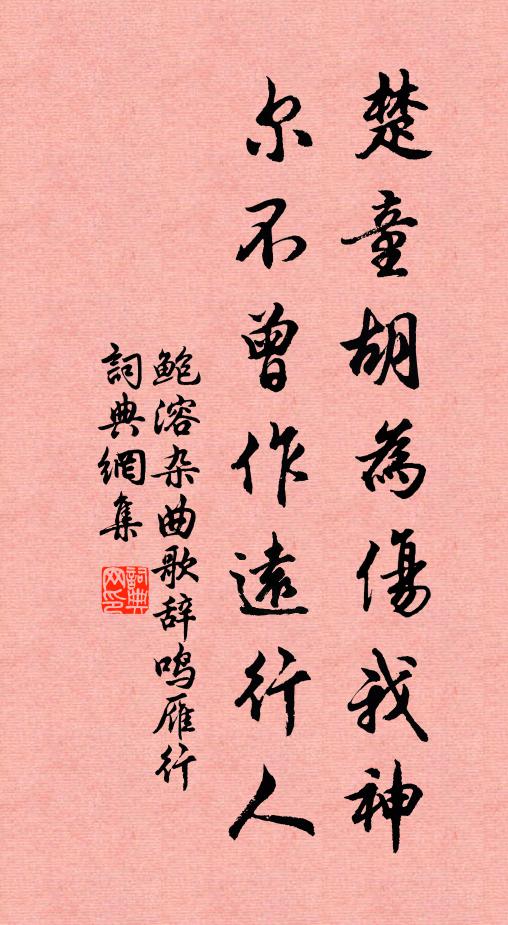 楚童胡為傷我神
尔不曾作遠行人
鲍溶杂曲歌辞鸣雁行
詞典網集
詞典网印